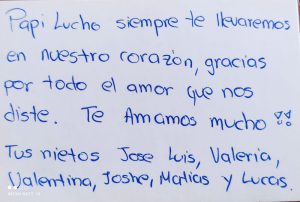 Papi Lucho siempre te llevaremos
en nuestro corazón, gracias
por todo el amor que nos
diste. Te Amamos mucho !!
Tus nietos Jose Luis, Valeria,
Valentina, Joshe, Matias y Lucas.